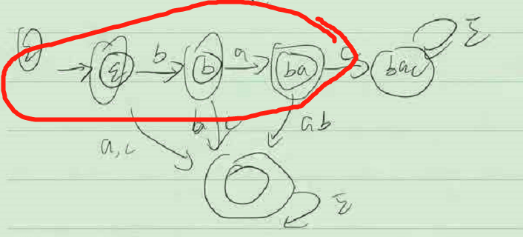 Σ
ε b b a ba c bac Σ
a,c b c a b
Σ